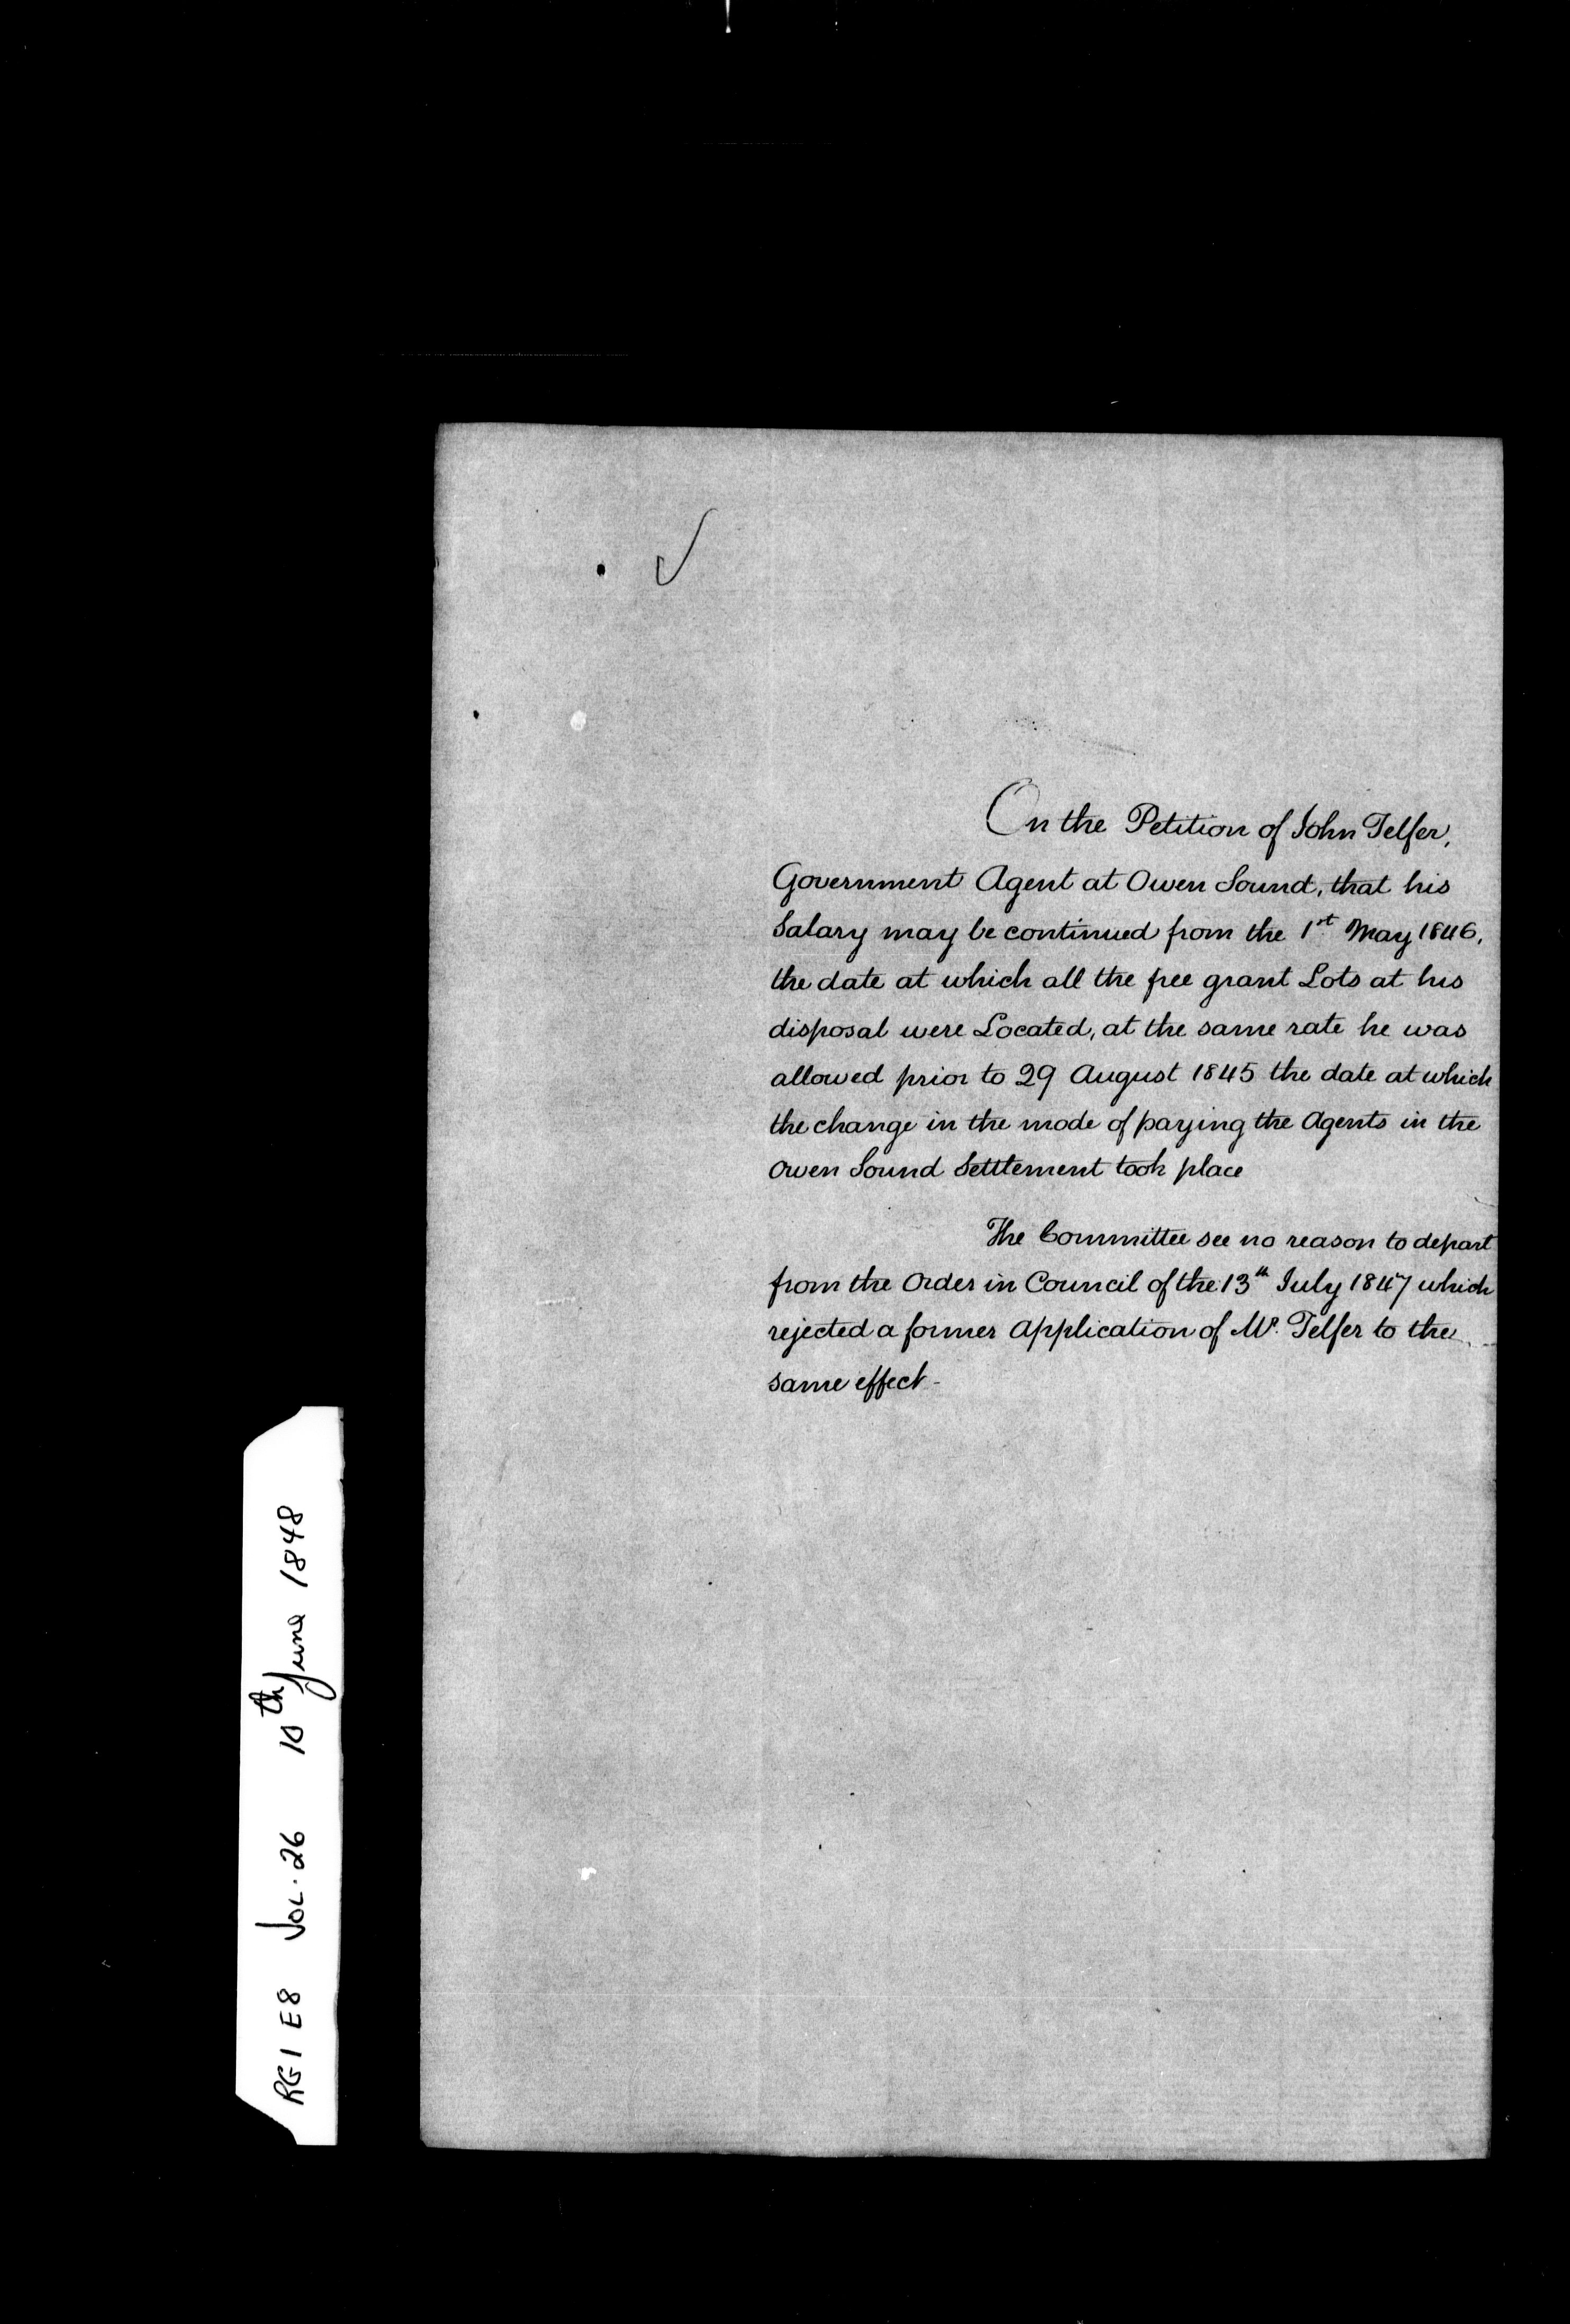 On the Petition of John Telfer,
Government Agent at Owen Sound, that his
Salary may be continued from the 1st May 1846,
the date at which all the free grant Lots at his
disposal were Located, at the same rate he was
allowed prior to 29 August 1845 the date at which
the change in the mode of paying the Agents in the
Owen Sound Settlement took place
The Committee see no reason to depart
from the Order in Council of the 13th July 1847 which
rejected a former Application of Mr. Telfer to the
same effect -
RG1 E8 VOL. 26 10th June 1848